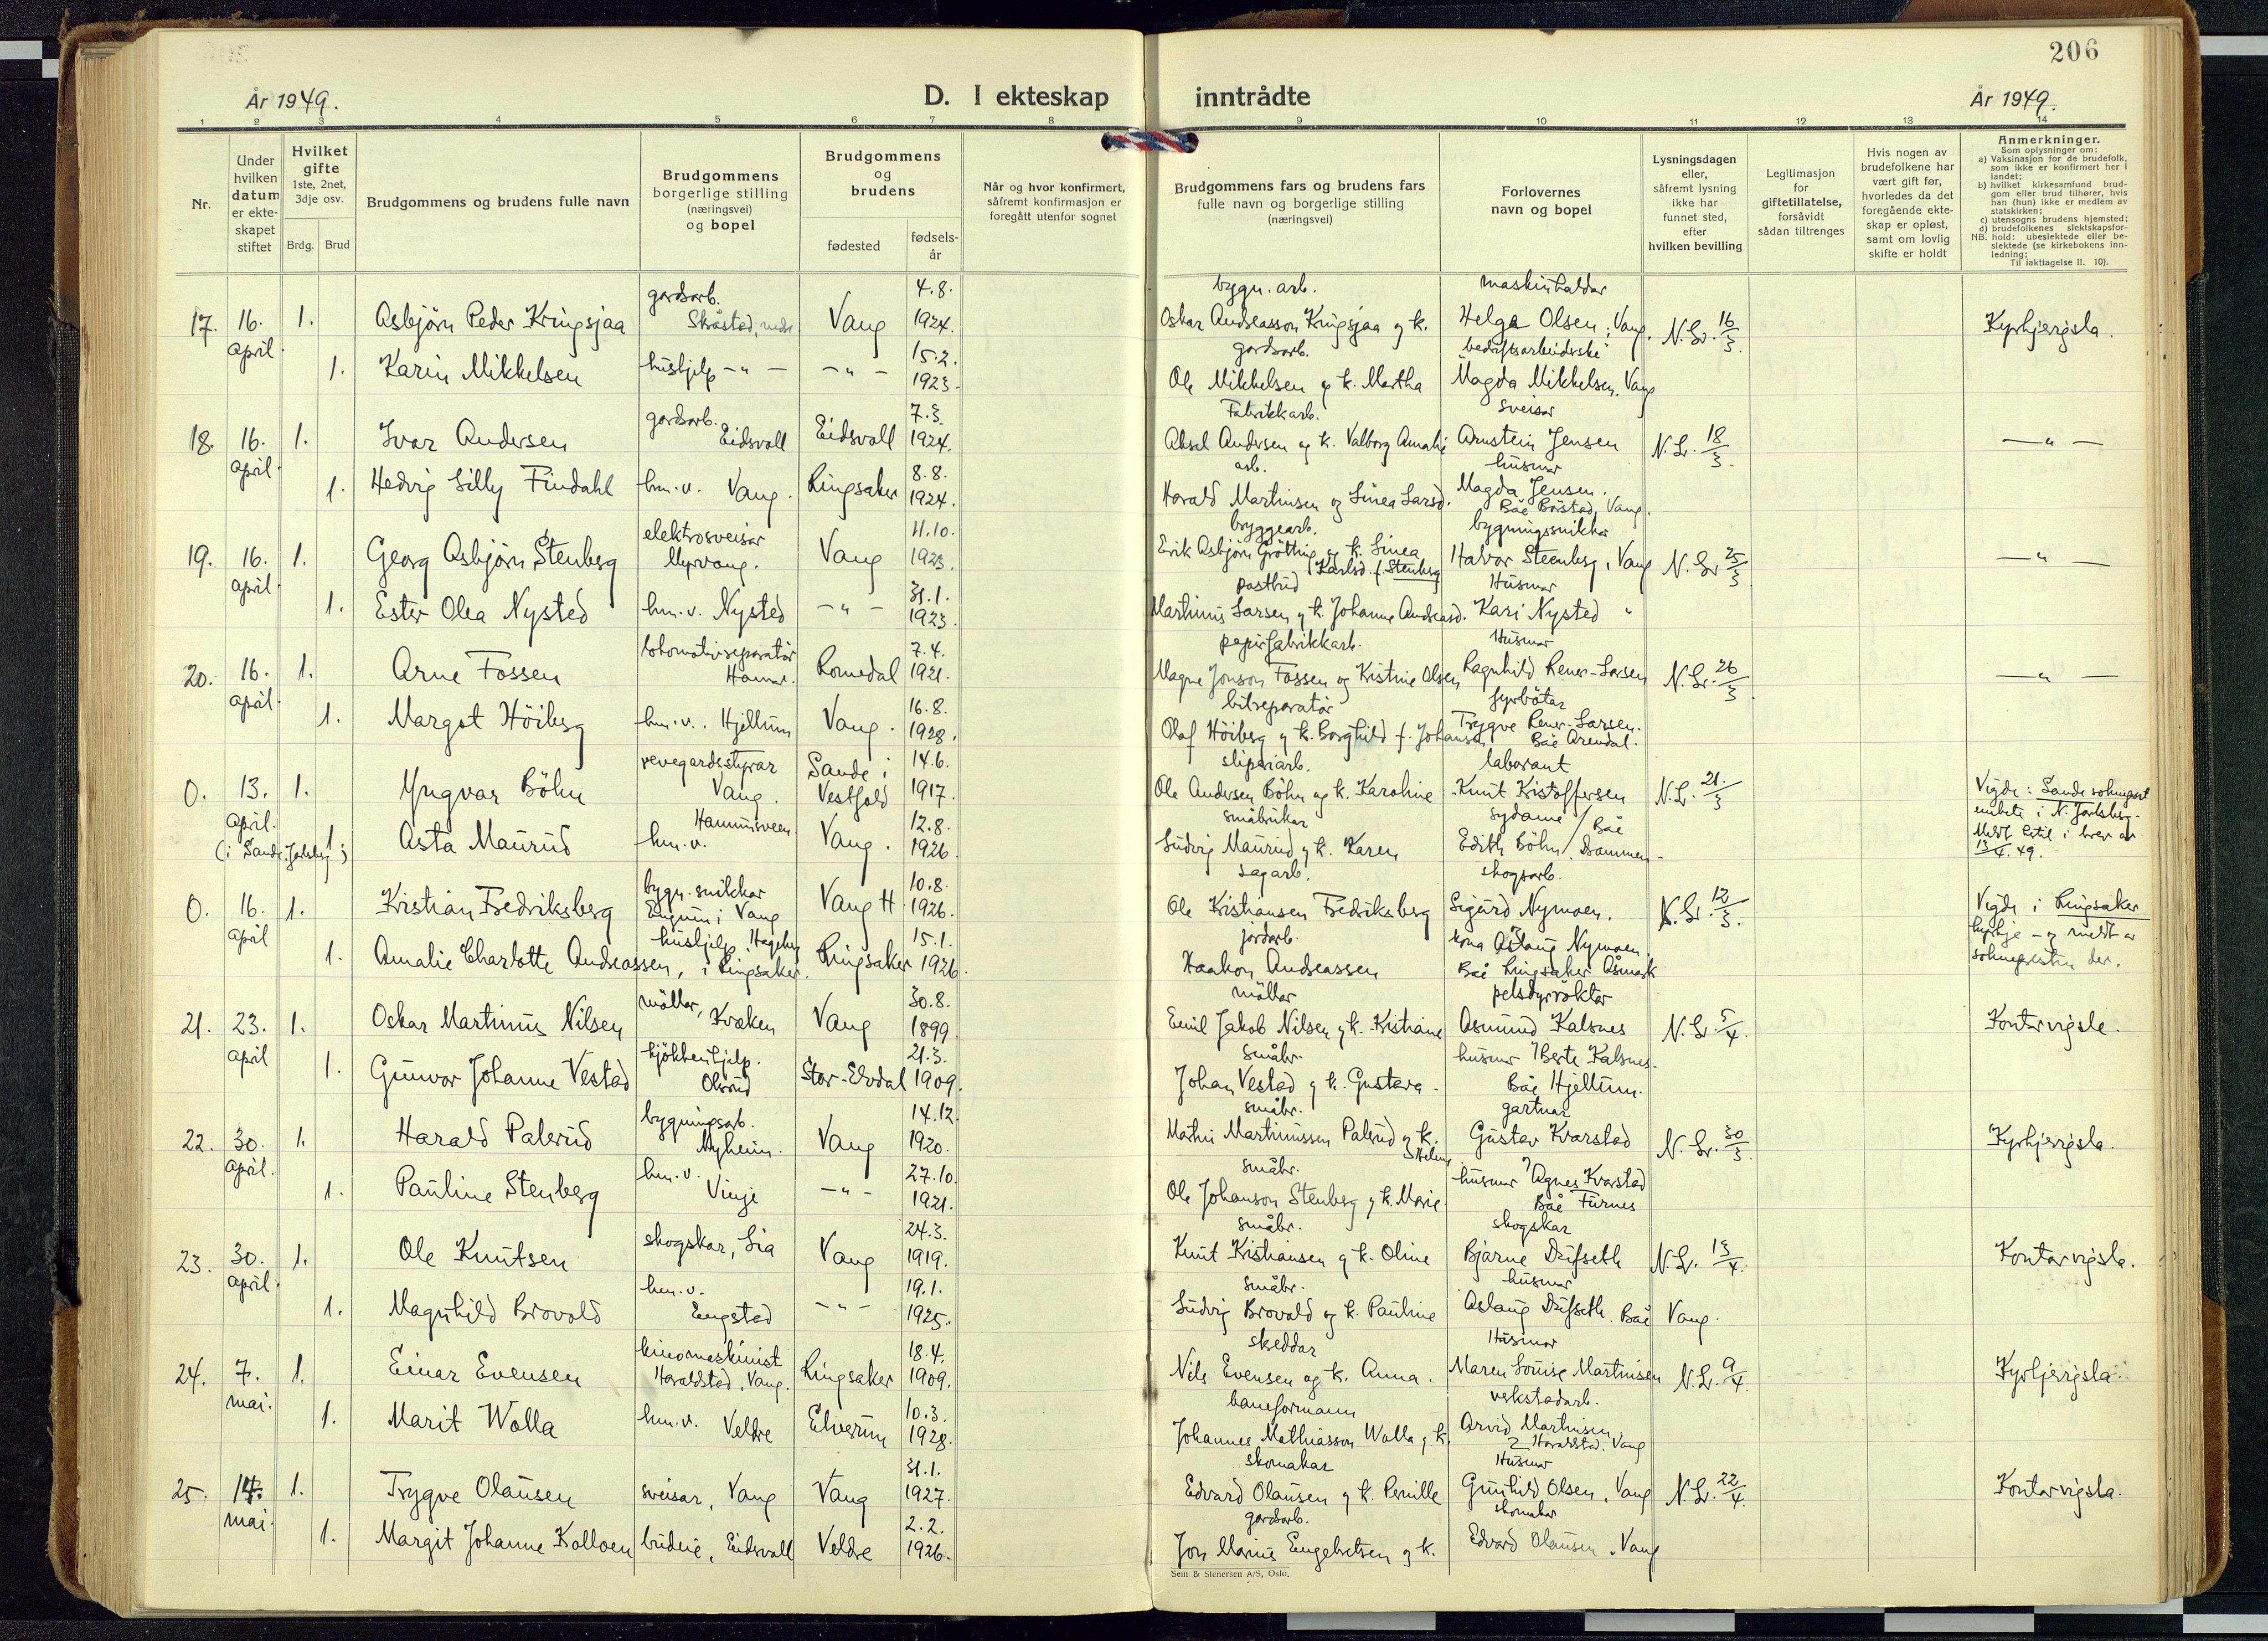 206
År 1949.
D. I ekteskap inntrådte
År 1949.
1 2 3 4 5 6 7 8 9 10 11 12 13 14
Nr.
Under hvilken datum er ekte-skapet stiftet
Hvilket gifte 1ste, 2net, 3dje osv.
Brdg. Brud
Brudgommens og brudens fulle navn
Brudgommens borgerlige stilling (næringsvei) og bopel
Brudgommens og brudens
fødested
fødsels-år
Når og hvor konfirmert, såfremt konfirmasjon er foregått utenfor sognet
Brudgommens fars og brudens fars fulle navn og borgerlige stilling (næringsvei)
Forlovernes navn og bopel
Lysningsdagen eller, såfremt lysning ikke har funnet sted, efter hvilken bevilling
Legitimasjon for giftetillatelse, forsåvidt sådan tiltrenges
Hvis nogen av brudefolkene har vært gift før, hvorledes da det foregående ekte-skap er opløst, samt om lovlig skifte er holdt
Anmerkninger.
Som oplysninger om:
a) Vaksinasjon for de brudefolk, som ikke er konfirmert her i landet;
b) hvilket kirkesamfund brud-gom eller brud tilhører, hvis han (hun) ikke er medlem av statskirken;
c) utensogns brudens hjemsted;
d) brudefolkenes slektskapsfor-hold: ubeslektede eller be-slektede (se kirkebokens inn-ledning;
NB.
Til iakttagelse II. 10).
17. 16. april 1. Asbjørn Peder Kringsjaa gardsarb. Skåstad, Vang 4.8. 1924. bygn. arb. Oskar Andreasson Kringsjaa og k. maskinhaldar Helga Olsen, Vang. N. Lr. 16/3. Kyrkjevigsla.
1. Karin Mikkelsen hushjelp -"- -"- 15.2. 1923. gardsarb. Ole Mikkelsen og k. Martha bedriftsarbeiderske Magda Mikkelsen, Vang
18. 16. april. 1. Ivar Andersen gardsarb. Eidsvoll Eidsvoll 7.3. 1924. Fabrikkarb. Aksel Andersen og k. Valborg Amalie sveisar Arnstein Jensen N. L. 18/3. -"-
1. Hedvig Lilly Findahl hm. v. Vang. Ringsaker 8.8. 1924. arb. Harald Martinsen og Linea Larsd. husmor Magda Jensen. Båe Børstad, Vang.
19. 16. april. 1. Georg Asbjørn Stenberg elektrosveisar Myrvang. Vang 11.10. 1923. bryggearb. Erik Asbjørn Grötting og k. Linea Karlsd. f. Stenberg bygningssnikkar Halvor Steenberg, Vang N. Lr. 25/3 -"-
1. Ester Olea Nysted hm. v. Nysted -"- 31.1. 1923. postbud Martinus Larsen og k. Johanne Andreasd. Husmor Kari Nysted "
20. 16. april. 1. Arne Fossen lokomotivreparatør Hamar. Romedal 7.4. 1921. papirfabrikkarb. Magne Jonson Fossen og Kristine Olsen Husmor Ragnhild Rener-Larsen N. Lr. 26/3 -"-
1. Margot Höiberg hm. v. Hjellum Vang. 16.8. 1928. bilreparatør Olaf Höiberg og k. Borghild f. Johansen fyrbøtar Trygve Rener-Larsen. Båe Arendal.
0. 13. april. (i Sande, Jarlsberg) 1. Yngvar Böhn revegardsstyrar Vang. Sande i Vestfold 14.6. 1917. sliperiarb. Ole Andersen Böhn og k. Karoline laborant Knut Kristoffersen N. L. 21/3 Vigde: Sande sokneprest embete i N. Jarlsberg. Meldt hertil i brev av 13/4. 49.
1. Asta Maurud Hammersveen hm. v. Vang. 12.8. 1926 småbrukar Ludvig Maurud og k. Karen sydame Edith Böhn / Båe Drammen.
0. 16. april 1. Kristian Fredriksberg bygn. snikkar i Vang Vang H. 10.8. 1926. sagarb. Ole Kristiansen Fredriksberg skogsarb. Sigurd Nymoen. N. Lr. 12/3. Vigde i Ringsaker kyrkje - og meldt av soknepresten der.
1. Amalie Charlotte Andreassen, hushjelp, Hageby i Ringsaker. Ringsaker 15.1. 1926. jordarb. Haakon Andreassen kona Åslaug Nymoen Båe Ringsaker Åsmark
21. 23. april 1. Oskar Martinus Nilsen möllar, Kvæken Vang 30.8. 1899 möllar Emil Jakob Nilsen og k. Kristiane pelsdyrröktar Asmund Kalsnes N. Lr. 5/4. Kontorvigsle.
1. Gunvor Johanne Vestad kjökkenhjelp. Olsrud Stor-Elvdal 21.3. 1909. småbr. Johan Vestad og k. Gustava. husmor Berte Kalsnes. Båe Hjellum.
22. 30. april. 1. Harald Palerud bygningsarb. Nyheim. Vang 14.12. 1920. småbr. Mathis Martinussen Palerud og k. Helene gartnar Gustav Kvarstad N. Lr. 30/3. Kyrkjevigsla.
1. Pauline Stenberg hm. v. Vinje -"- 27.10. 1921. småbr. Ole Johanson Stenberg og k. Marie husmor Agnes Kvarstad Båe Furnes
23. 30. april. 1. Ole Knutsen skogskar, Lia Vang 24.3. 1919. småbr. Knut Kristiansen og k. Oline skogskar Bjarne Dufseth N. L. 13/4. Kontorvigsla.
1. Magnhild Brovold hm. v. Engstad -"- 19.1. 1925. småbr. Ludvig Brovold og k. Pauline husmor Aslaug Dufseth. Båe Vang.
24. 7. mai. 1. Einar Evensen kinomaskinist Haraldstad, Vang. Ringsaker 18.4. 1909. skreddar Nils Evensen og k. Anna. Husmor Maren Louise Martinsen N. L. 9/4. Kyrkjevigsla.
1. Marit Wolla hm. v. Veldre Elverum 10.3. 1928. baneformann Johannes Mathiasson Wolla og k. verkstadarb. Arvid Martinsen Haraldstad, Vang
25. 14. mai. 1. Trygve Olausen sveisar, Vang Vang 31.1. 1927. skomakar Edvard Olausen og k. Pernille Husmor Gunhild Olsen, Vang N. Lr. 22/4. Kontorvigsla.
1. Margit Johanne Kolloen budeie, Eidsvoll Veldre 2.2. 1926. gardsarb. Jon Marius Engebretsen og k. skomakar Edvard Olausen, Vang
Sem & Stenersen A/S, Oslo.